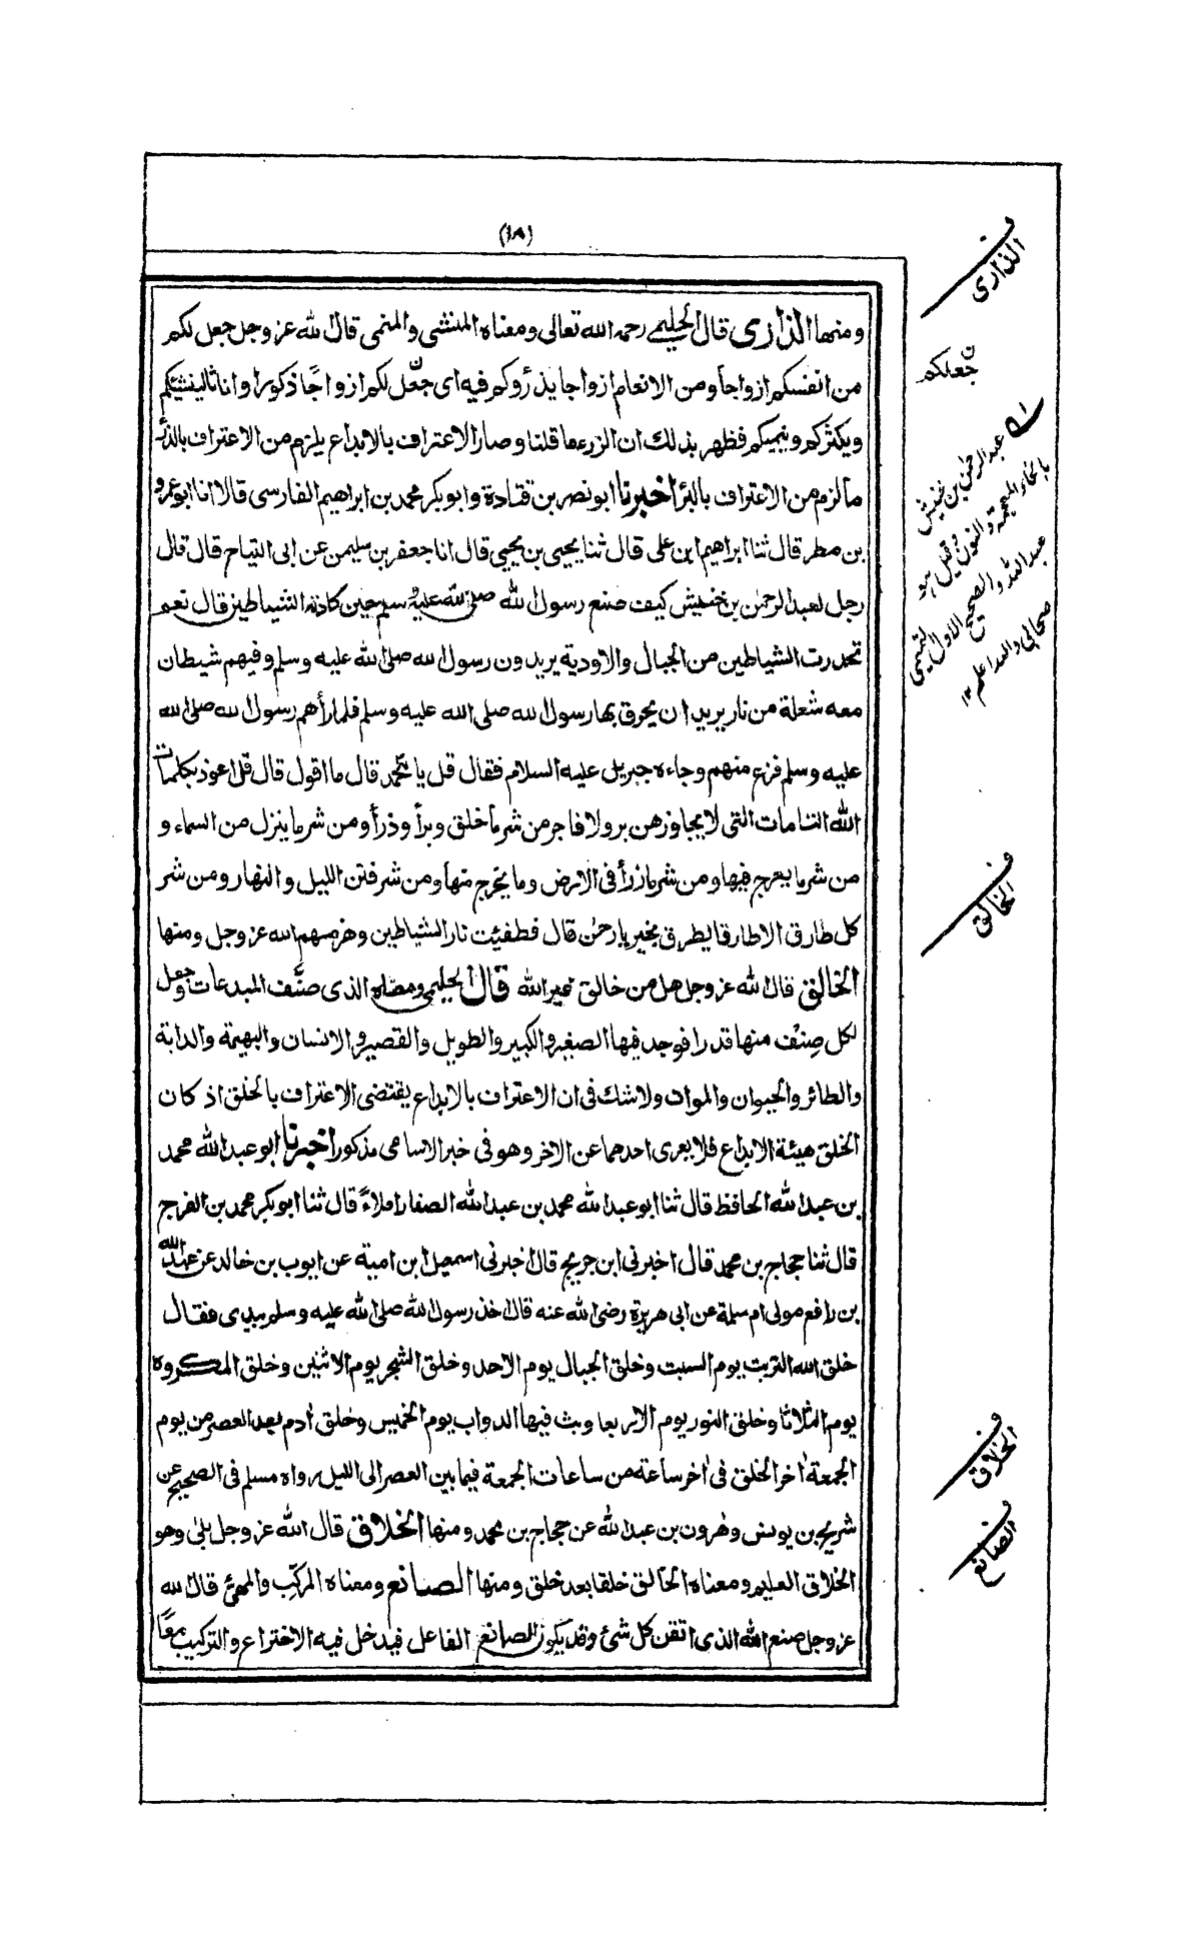 (١٨)
ومنها الذارى قال الحليمى رحمه الله تعالى ومعناه المنشى والمنمى قال الله عز وجل جعل لكم
من انفسكم ازواجا ومن الانعام ازواجا يذرؤكم فيه اى جعل لكم ازواجًا ذكورا واناثا لينشئكم
ويكثركم وينميكم فظهر بذلك ان الذرء ما قلنا وصار الاعتراف بالابداع يلزم من الاعتراف بالذرْ
ما لزم من الاعتراف بالبرْ اخبرنا ابو نصر بن قتادة وابو بكر محمد بن ابراهيم الفارسى قالا انا ابو عمرو
بن مطر قال ثنا ابراهيم ابن على قال ثنا يحيى بن يحيى قال انا جعفر بن سليمن عن ابى التياح قال قال
رجل لعبد الرحمٰن بن خنبش كيف صنع رسول الله صلى الله عليه وسلم حين كادته الشياطين قال نعم
تحدرت الشياطين من الجبال والاودية يريدون رسول الله صلى الله عليه وسلم وفيهم شيطان
معه شعلة من نار يريد ان يحرق بها رسول الله صلى الله عليه وسلم فلما رأهم رسول الله صلى الله
عليه وسلم فزع منهم وجاءه جبريل عليه السلام فقال قل يا محمد قال ما اقول قال قل اعوذ بكلمات
الله التامات التى لا يجاوزهن بر ولا فاجر من شر ما خلق وبرأ وذرأ ومن شر ما ينزل من السماء و
من شر ما يعرج فيها ومن شر ما ذرأ فى الارض وما يخرج منها ومن شر فتن الليل والنهار ومن شر
كل طارق الا طارقا يطرق بخير يا رحمٰن قال فطفيئت نار الشياطين وهزمهم الله عز وجل ومنها
الخالق قال الله عز وجل هل من خالق غير الله قال الحليمى ومعناه الذى صنَّف المبدعات وجعل
لكل صِنْف منها قدرا فوجد فيها الصغير والكبير والطويل والقصير والانسان والبهيمة والدابة
والطائر والحيوان والموات ولا شك فى ان الاعتراف بالابداع يقتضى الاعتراف بالخلق اذ كان
الخلق هيئة الابداع فلا يعرى احدهما عن الاخر وهو فى خبر الاسامى مذكور اخبرنا ابو عبد الله محمد
بن عبد الله الحافظ قال ثنا ابو عبد الله محمد بن عبد الله الصفار املاءً قال ثنا ابو بكر محمد بن الفرج
قال ثنا حجاج بن محمد قال اخبرنى ابن جريج قال اخبرنى اسمعيل ابن امية عن ايوب بن خالد عن عبد الله
بن رافع مولى ام سلمة عن ابى هريرة رضى الله عنه قال اخذ رسول الله صلى الله عليه وسلم بيدى فقال
خلق الله التربت يوم السبت وخلق الجبال يوم الاحد وخلق الشجر يوم الاثنين وخلق المكروه
يوم الثلاثا وخلق النور يوم الاربعا وبث فيها الدواب يوم الخميس وخلق اٰدم بعد العصر من يوم
الجمعة اٰخر الخلق فى اٰخر ساعة من ساعات الجمعة فيما بين العصر الى الليل رواه مسلم فى الصحيح عن
شريح بن يونس وهٰرون بن عبد الله عن حجاج بن محمد ومنها الخلاق قال الله عز وجل بلى وهو
الخلاق العليم ومعناه الخالق خلقا بعد خلق ومنها الصانع ومعناه المركّب والمهئ قال الله
عز وجل صنع الله الذى اتقن كل شئ وقد يكون الصانع الفاعل فيدخل فيه الاختراع والتركيب معًا
ف الذارى
ن جعلكم
لہ عبد الرحمٰن بن خنبش
بالخاء المعجمة والنون وقيل هو
عبد الله والصحيح الاول التميمى
صحابى والله اعلم ١٢
ف الخالق
ف الخلاق
ف الصانع